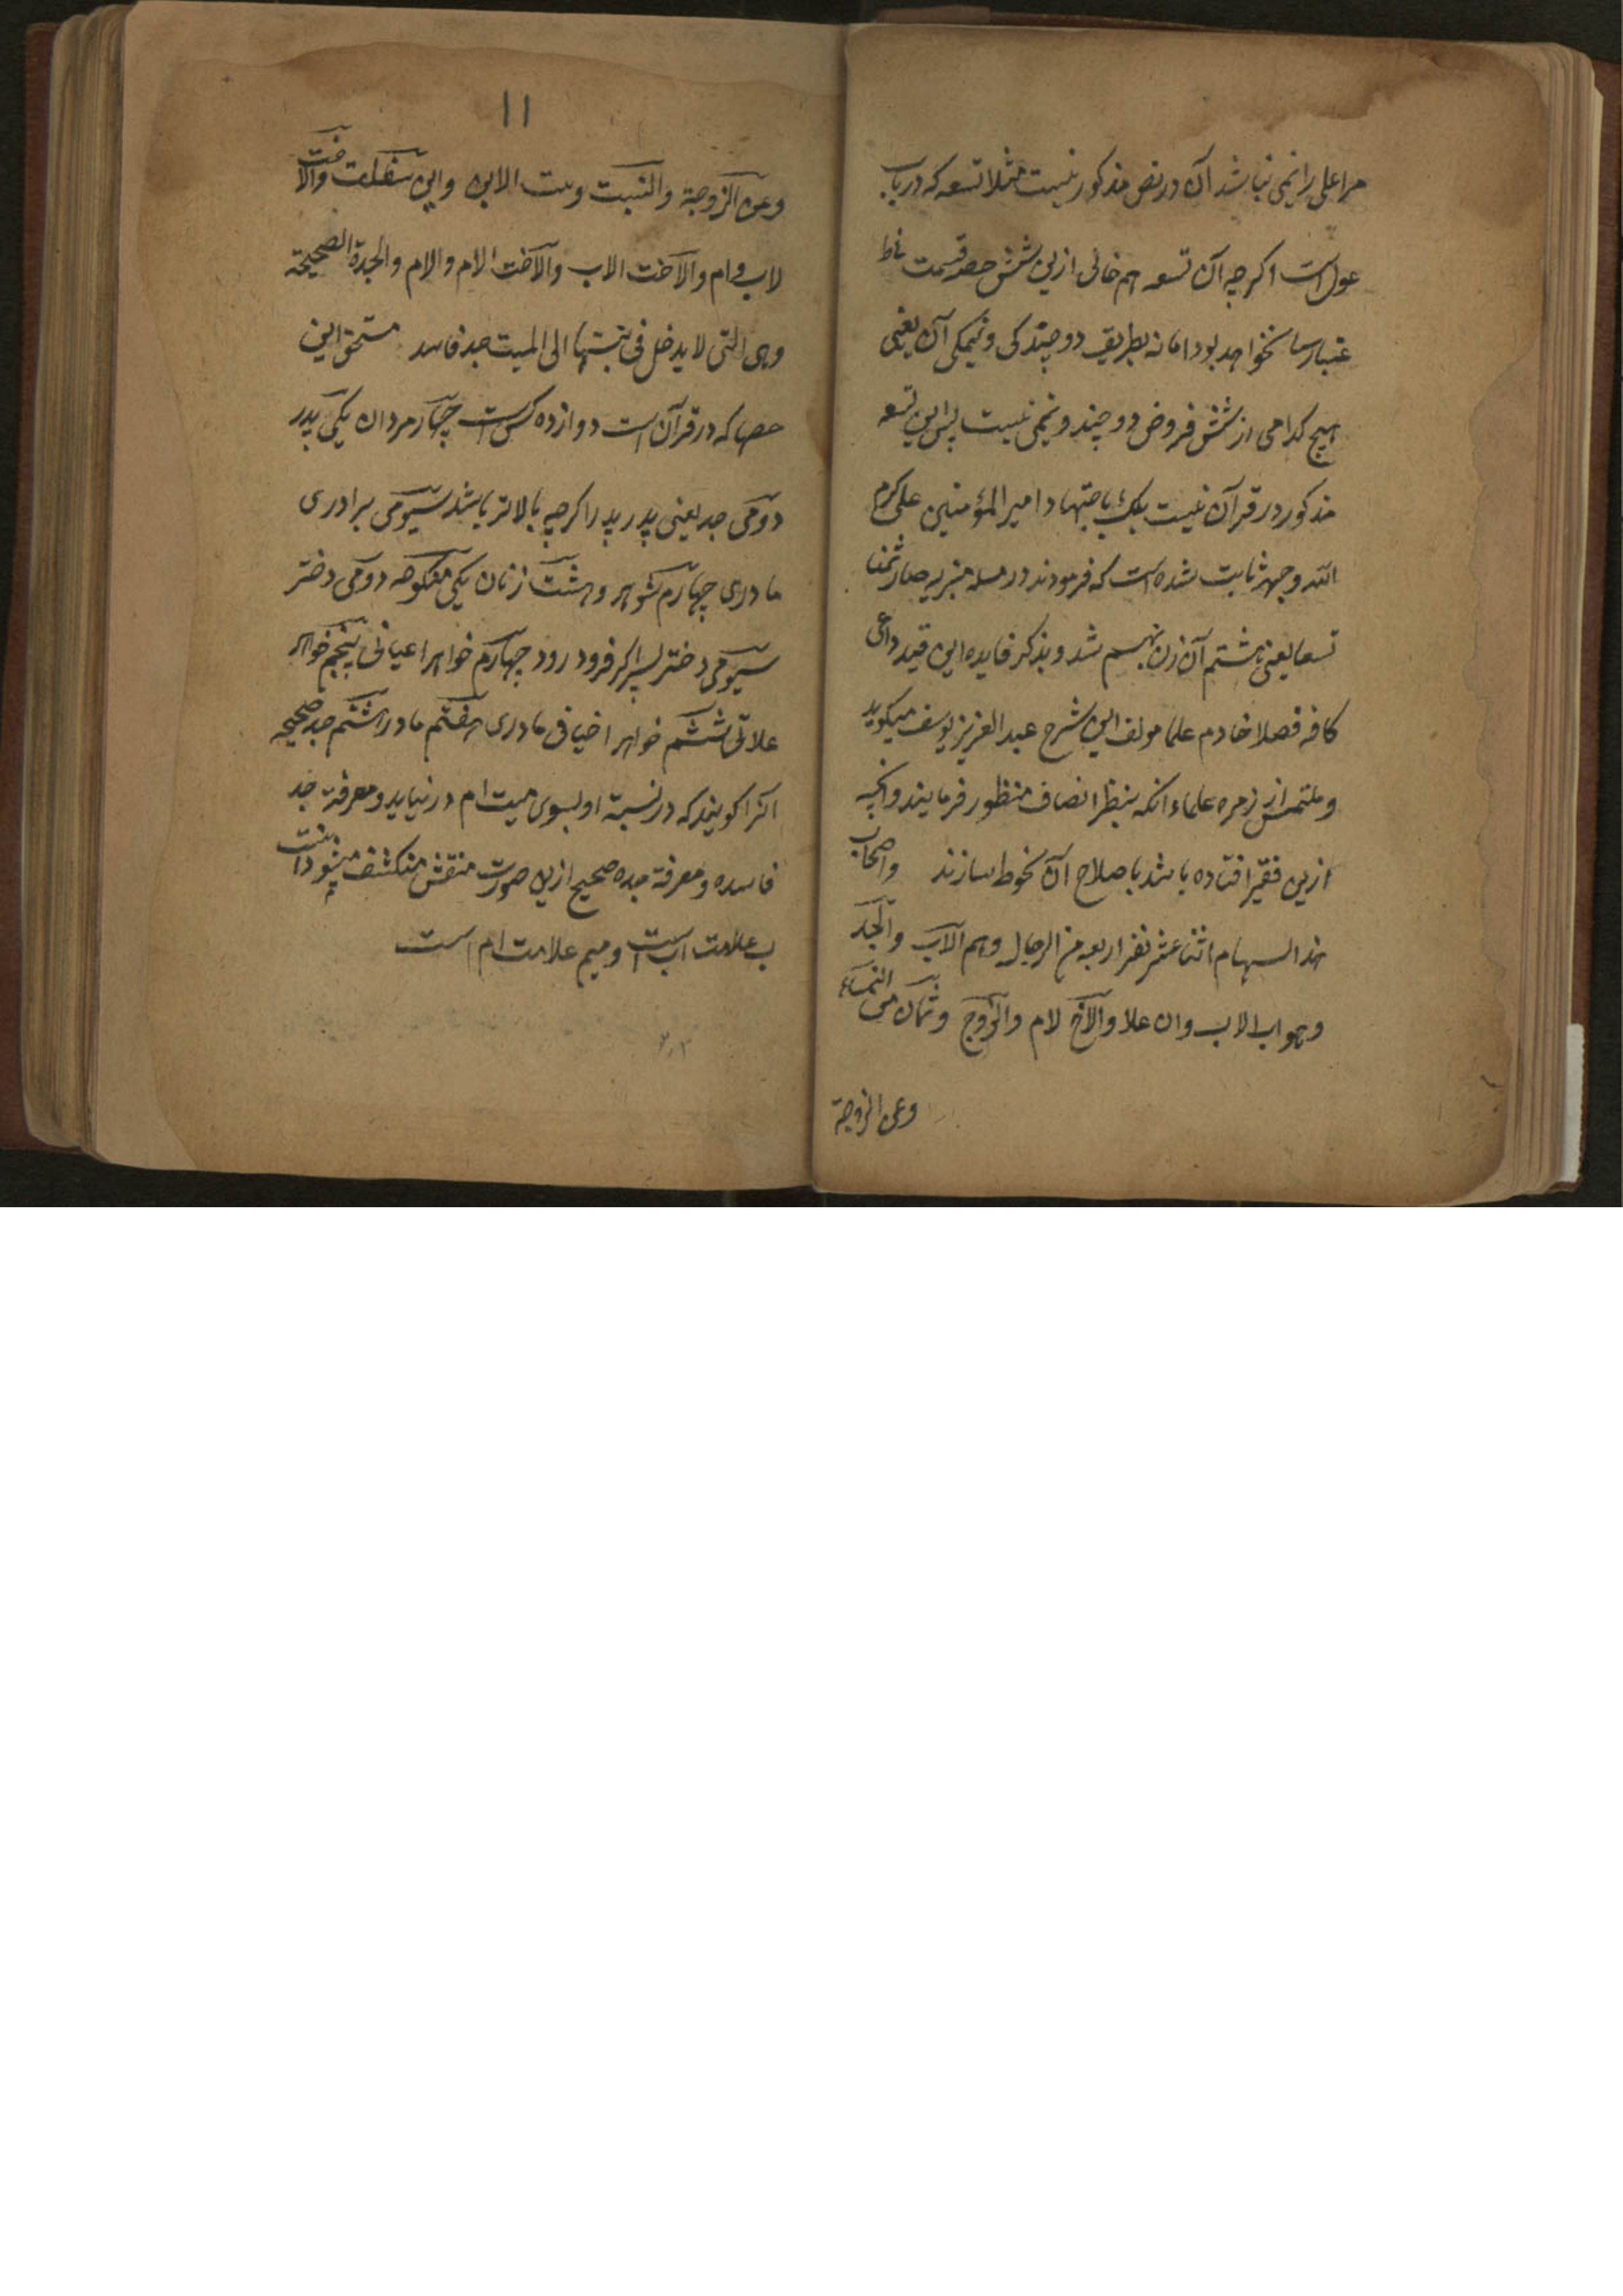 مر اعلی را نمی نباشد آن در نص مذکور نیست مثلا تسعه که در باب
عول است اکرچه آن تسعه هم خالی ازین شش حصه قسمت
نخواهد بود اما نه بطریق دو چندکی و نیمکی آن یعنی
هیچ کدامی از شش فروض دو چند و نیمی نیست پس این تسعه
مذکور در قرآن نیست بلک باجتهاد امیر المؤمنین علی کرم
الله وجهه ثابت شده است که فرمودند در مسله منبریه صار ثمنها
تسعا یعنی هشتم آن زن نهم شد و بذکر فایده این قید داعی
کافه فضلا خادم علما مولف این شرح عبد العزیز یوسف میکوید
و ملتمس از زمره علماء انکه بنظر انصاف منظور فرمایند وانچه
ازین فقیر افتاده باشد باصلاح آن محوط سازند واصحاب
هذا السهام اثنا عشر نفر اربعه من الرجال وهم الاب والجد
وهو اب الاب وان علا والاخ لام والزوج وثمان من النساء
وعن الزوجة
۱۱
وعن الزوجة والبنت وبنت الابن وابن سفلت والاخت
لاب وام والاخت الاب والاخت الام والام والجدة الصحیحة
وهی التی لا یدخل فی نسبتها الی المیت جد فاسد مستحق این
حصها که در قرآن است دوازده کس است چهار مردان یکی پدر
دومی جد یعنی پدر پدر اکرچه بالاتر باشد سیومی برادری
مادری چهارم شوهر و هشت زنان یکی منکوحه دومی دختر
سیومی دختر پسر اکر فرود رود چهارم خواهر اعیانی پنجم خواهر
علاتی ششم خواهر اخیافی مادری هفتم مادر هشتم جد صحیحه
انرا کویند که در نسبة او بسوی میت ام در نیاید و معرفة جد
فاسده و معرفة جده صحیح ازین صورت منقش منکشف میشود
ب علامت اب است و میم علامت ام است